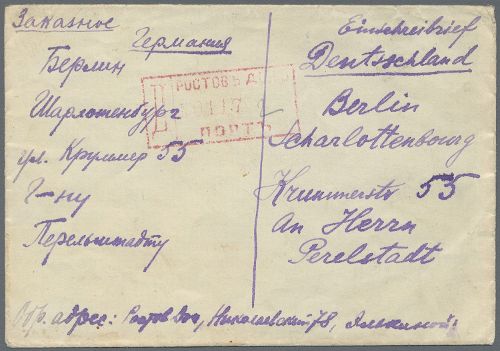 Заказное
Германия
Берлин
Шарлотенбург
ул. Круммер 55
Г-ну
Перельштадту
Einschreibbrief
Deutschland
Berlin
Scharlottenbourg
Krummerstr 55
An Herrn
Perelstadt
РОСТОВЪ
ПОРТЪ
Обр. адрес: Ростов Дон, Николаевский 78,